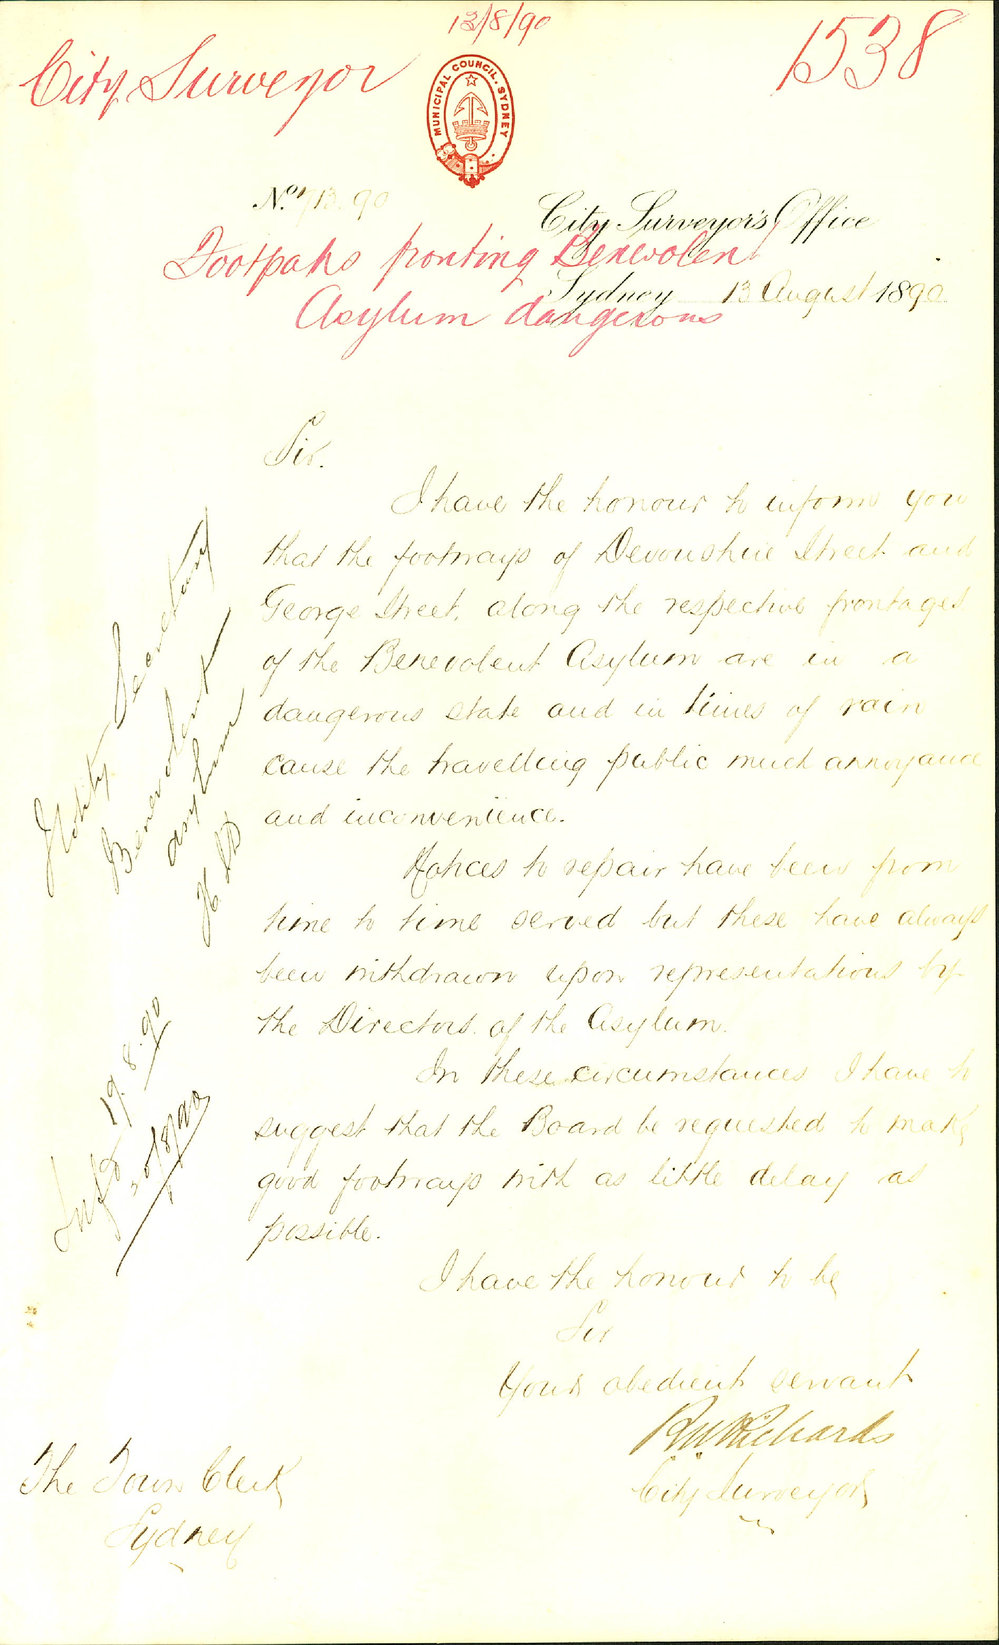 13/8/90
City Surveyor
1538
MUNICIPAL COUNCIL. SYDNEY
No. 713.90
City Surveyor's Office
Footpahs fronting Benevolen
Sydney 13 August 1890
Asylum dangerous
Sir.
I have the honour to inform you
that the footways of Devonshire Street and
George Street, along the respective frontages
of the Benevolent Asylum are in a
dangerous state and in times of rain
cause the travelling public much annoyance
and inconvenience.
Notices to repair have been from
time to time served but these have always
been withdrawn upon representations by
the Directors of the Asylum.
In these circumstances I have to
suggest that the Board be requested to make
good footways with as little delay as
possible.
I have the honour to be
Sir
Your obedient servant
R W Richards
City Surveyor
The Town Clerk
Sydney
Notify Secretary
Benevolent
Asylum
19.8.90
20/8/90